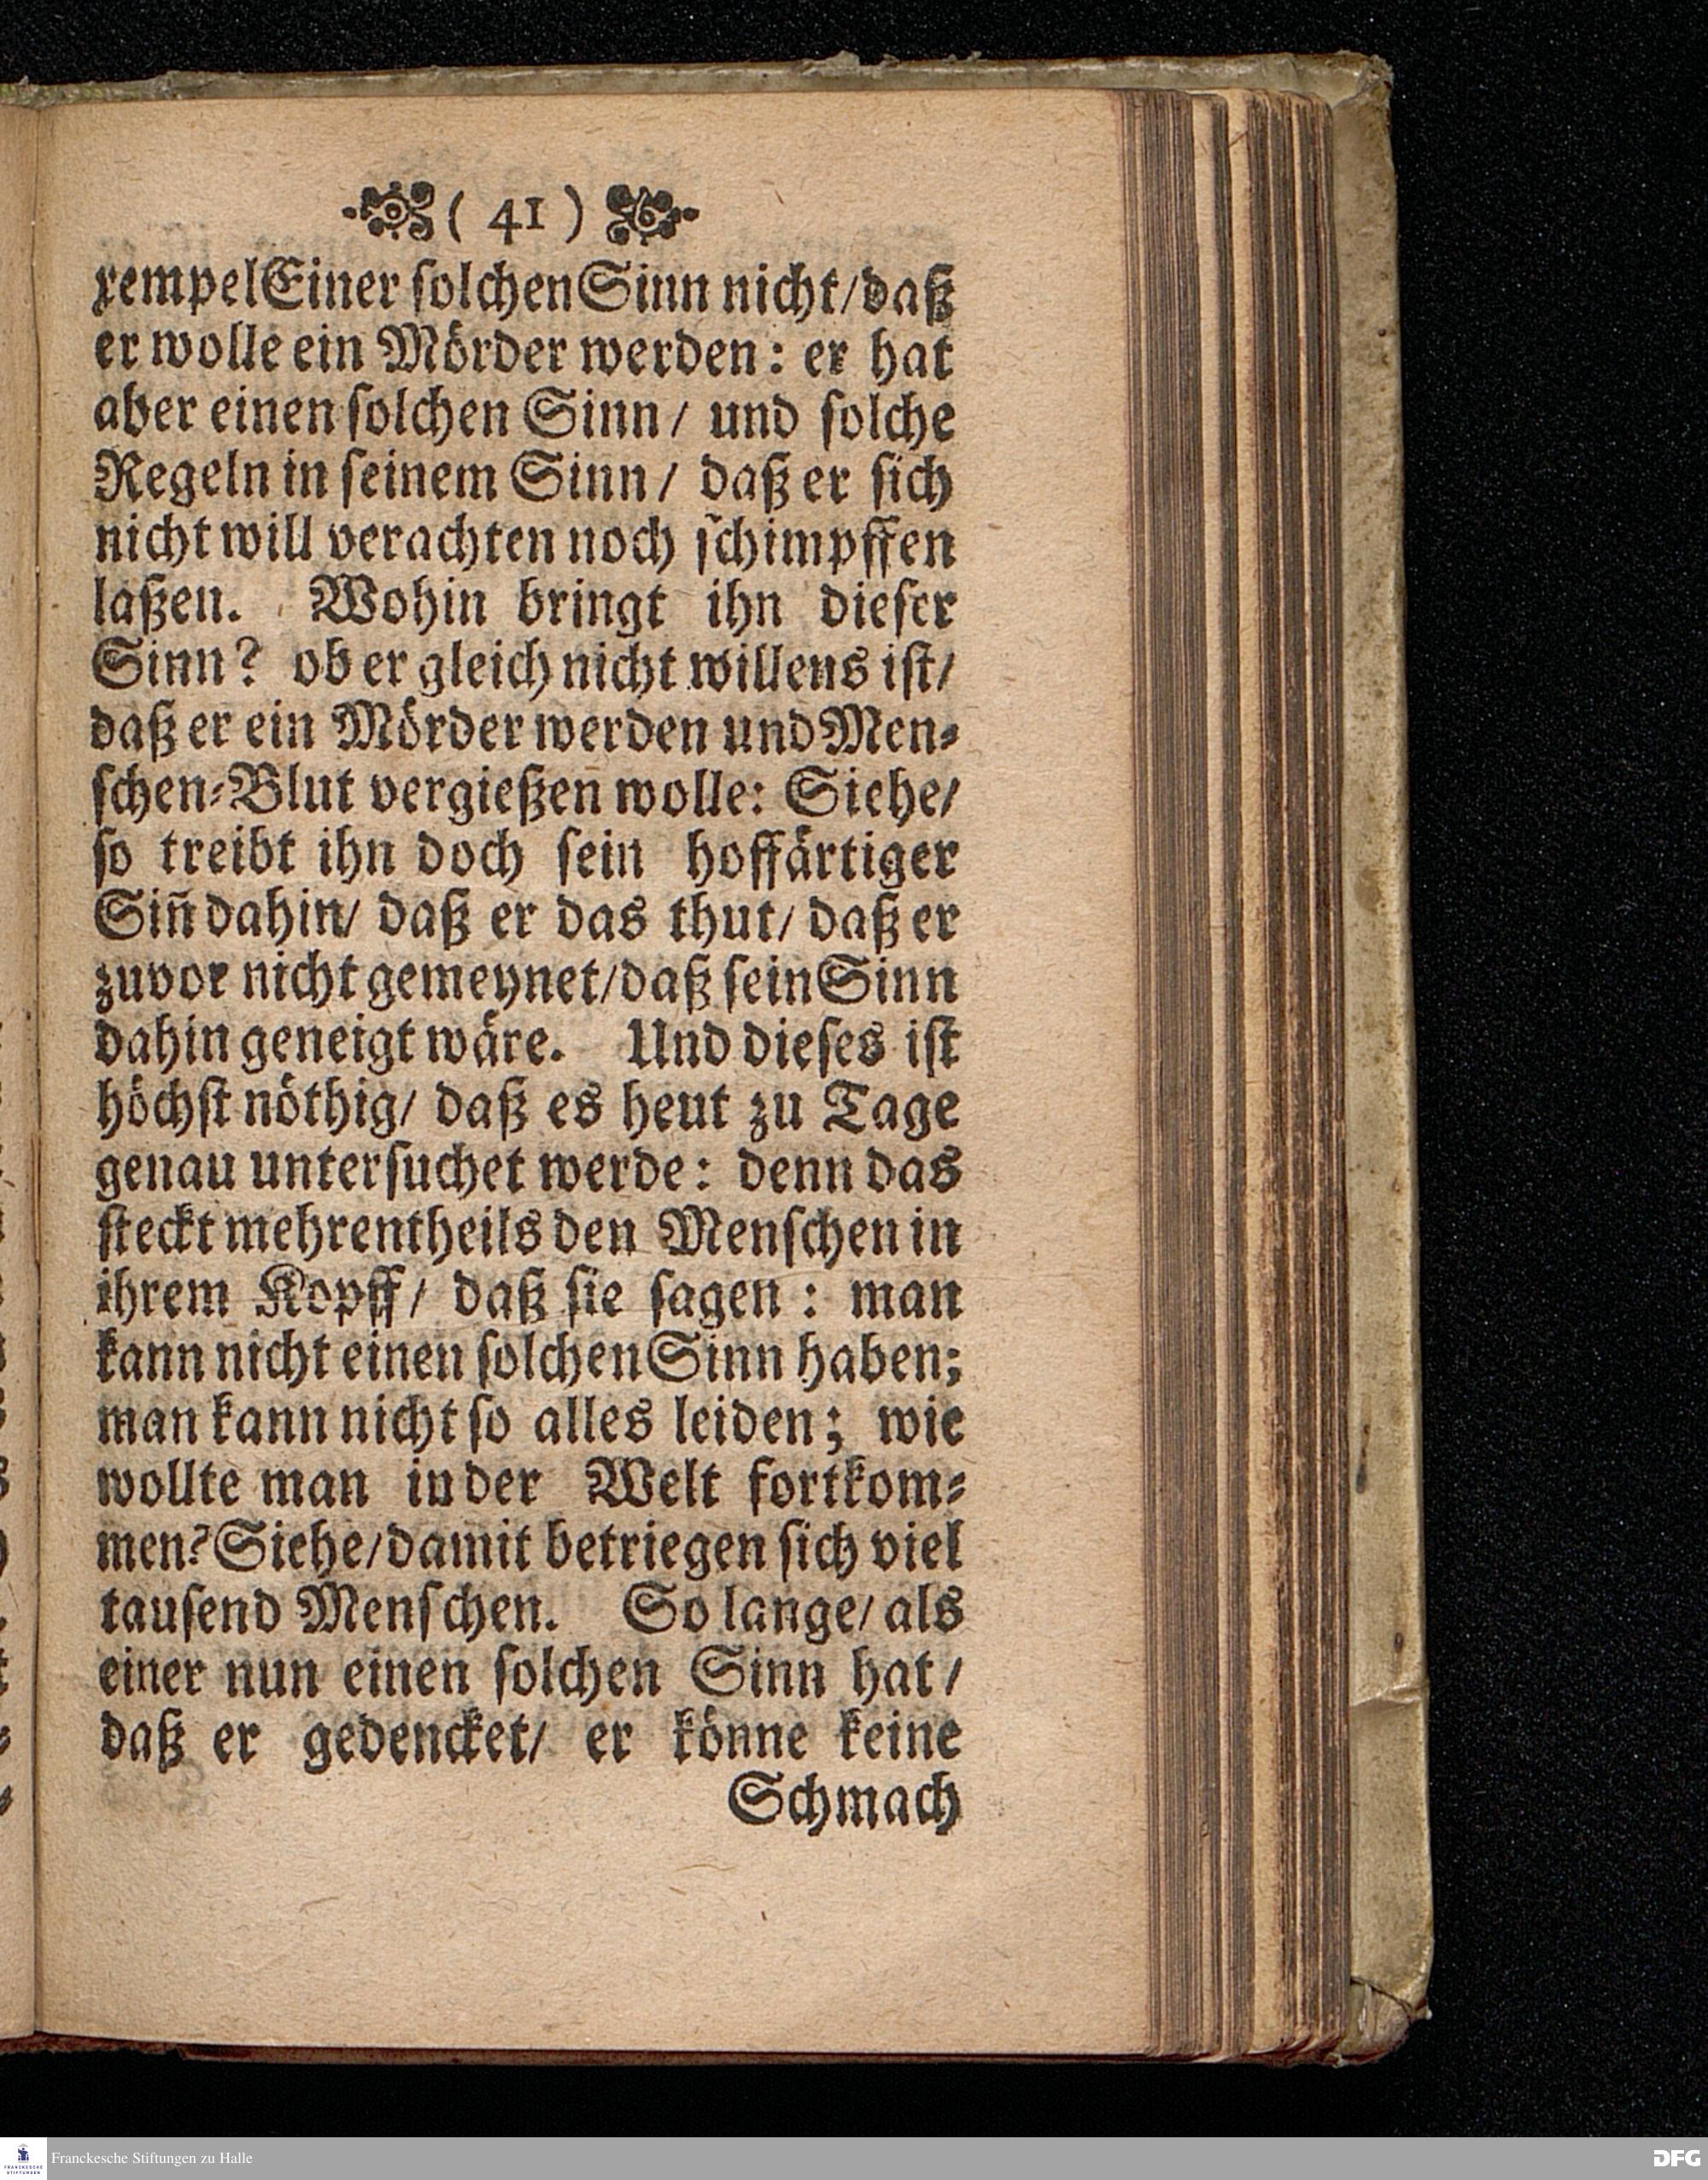 ( 41 )
xempel Einer solchen Sinn nicht/ daß
er wolle ein Mörder werden: er hat
aber einen solchen Sinn/ und solche
Regeln in seinem Sinn/ daß er sich
nicht will verachten noch schimpffen
laßen. Wohin bringt ihn dieser
Sinn? ob er gleich nicht willens ist/
daß er ein Mörder werden und Men-
schen-Blut vergießen wolle: Siehe/
so treibt ihn doch sein hoffärtiger
Siñ dahin/ daß er das thut/ daß er
zuvor nicht gemeynet/ daß sein Sinn
dahin geneigt wäre. Und dieses ist
höchst nöthig/ daß es heut zu Tage
genau untersuchet werde: denn das
steckt mehrentheils den Menschen in
ihrem Kopff/ daß sie sagen: man
kann nicht einen solchen Sinn haben;
man kann nicht so alles leiden; wie
wollte man in der Welt fortkom-
men? Siehe/ damit betriegen sich viel
tausend Menschen. So lange/ als
einer nun einen solchen Sinn hat/
daß er gedencket/ er könne keine
Schmach
FRANCKESCHE
STIFTUNGEN
Franckesche Stiftungen zu Halle
DFG